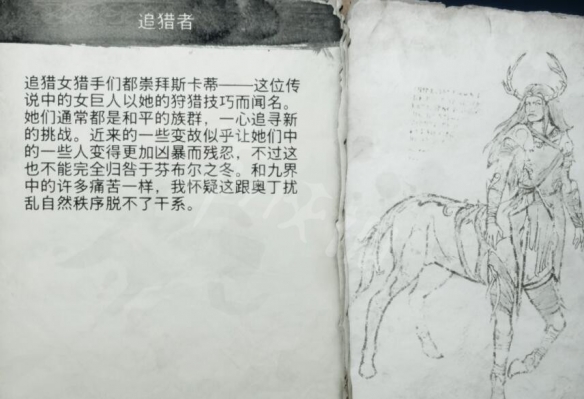 追猎者
追猎女猎手们都崇拜斯卡蒂——这位传
说中的女巨人以她的狩猎技巧而闻名。
她们通常都是和平的族群，一心追寻新
的挑战。近来的一些变故似乎让她们中
的一些人变得更加凶暴而残忍，不过这
也不能完全归咎于芬布尔之冬。和九界
中的许多痛苦一样，我怀疑这跟奥丁扰
乱自然秩序脱不了干系。